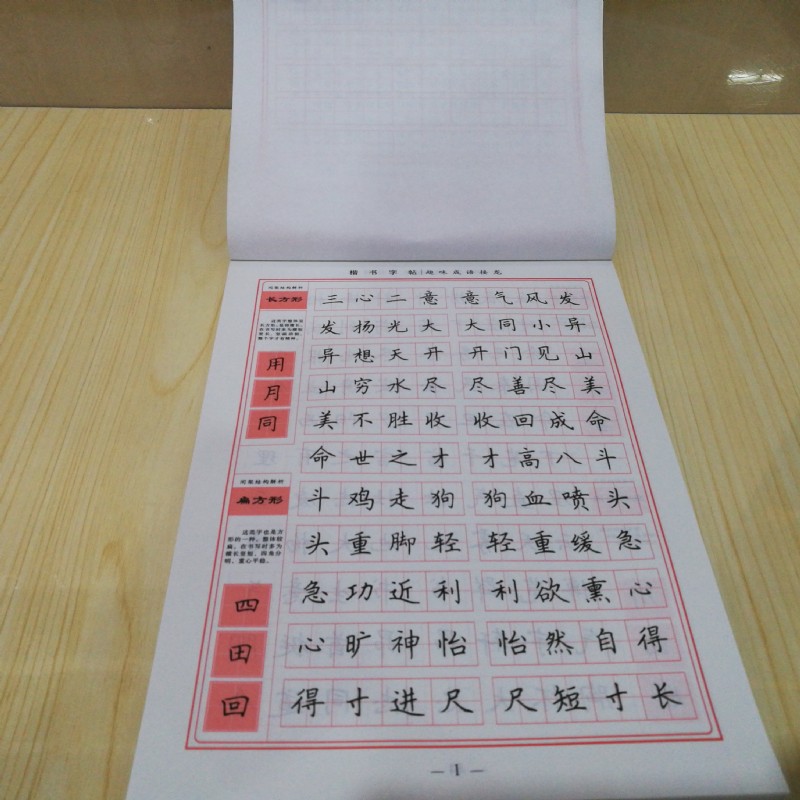 楷书字帖|趣味成语接龙
间架结构解析
长方形
用
月
同
间架结构解析
扁方形
四
田
回
三心二意 意气风发
发扬光大 大同小异
异想天开 开门见山
山穷水尽 尽善尽美
美不胜收 收回成命
命世之才 才高八斗
斗鸡走狗 狗血喷头
头重脚轻 轻重缓急
急功近利 利欲熏心
心旷神怡 怡然自得
得寸进尺 尺短寸长
— 1 —